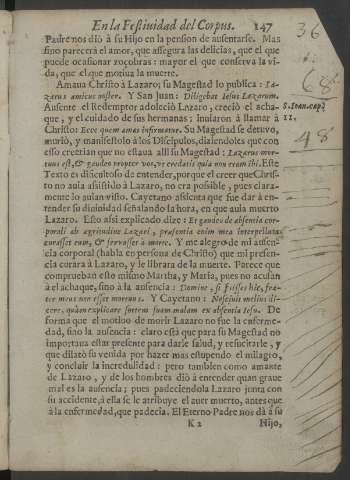 En la Festiuidad del Corpus. 147
Padre nos diò à su Hijo en la pension de ausentarse. Mas
sino pareceràel amor, que assegura las delicias, que el que
puede ocasionar zoçobras: mayor el que conserva la vi-
da, que el que motiua la muerte.
Amaua Christo à Lazaro; su Magestad lo publica: La-
zarus amicus noster. Y San Iuan: Diligebat Iesus Lazarum.
Ausente el Redemptor adoleciò Lazaro, creciò el acha-
que, y el cuidado de sus hermanas: inuiaron à llamar à
Christo: Ecce quem amas infirmatur. Su Magestad se detuvo,
muriò, y manifestolo à los Discipulos, diziendoles que con
esso creerian que no estaua allì su Magestad: Lazarus mor-
tuus est, & gaudeo propter vos, vt credatis quia non eram ibi. Este
Texto es dificultoso de entender, porque el creer que Chris-
to no auia assistido à Lazaro, no era possible, pues clara-
mente lo auian visto. Cayetano assienta que fue dar à en-
tender su diuinidad señalando la hora, en que auia muerto
Lazaro. Esto assi explicado dize: Et gaudeo de absentia cor-
porali ab agritudine Lazari, prasentia enim mea interpellata
curasset eum, & servasset à morte. Y me alegro de mi ausen-
cia corporal (habla en persona de Christo) que mi presen-
cia curara à Lazaro, y le librara de la muerte. Parece que
comprueban esto mismo Martha, y Maria, pues no acusan
à el achaque, sino à la ausencia: Domine, si fuisses hic, fra-
ter meus non esset mortuus. Y Cayetano: Nesciuis melius di-
cere, quàm explicare fratem suum malum ex absentia Iesu. De
forma que el motiuo de morir Lazaro no fue la enferme-
dad, sino la ausencia: claro està que para su Magestad no
importaua estar presente para darle salud, y resucitarle, y
que dilatò su venida por hazer mas estupendo el milagro,
y concluir la incredulidad: pero tambien como amante
de Lazaro, y de los hombres diò à entender quan graue
mal es la ausencia; pues padeciendola Lazaro junta con
su accidente, à ella se le atribuye el auer muerto, antes que
à la enfermedad, que padecia. El Eterno Padre nos dà à su
K 2 Hijo,
S. Ioan. cap.
11.
36
68
48